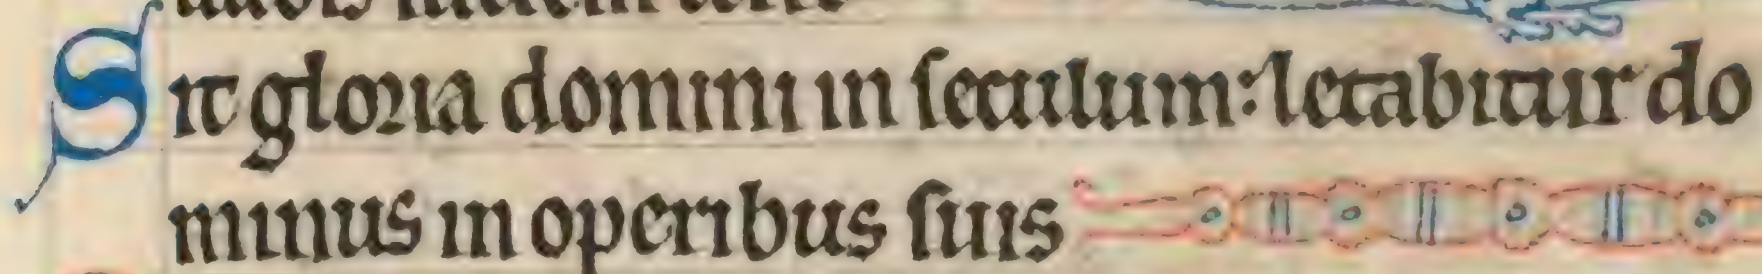 Sit gloria domini in seculum: letabitur do
minus in operibus suis